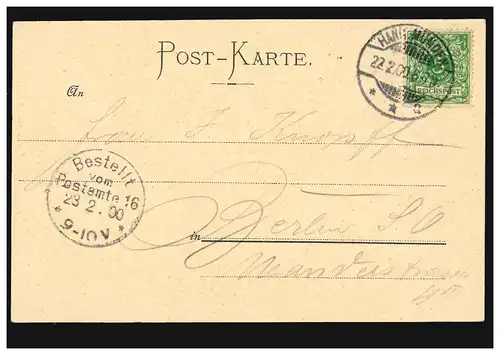 POST-KARTE.
HANN. MÜNDEN
22.2.00
REICHSPOST
An
Herrn F. Knopff
Bestellt
vom
Postamte 16
23 2.00
9-10V
in Berlin S.O